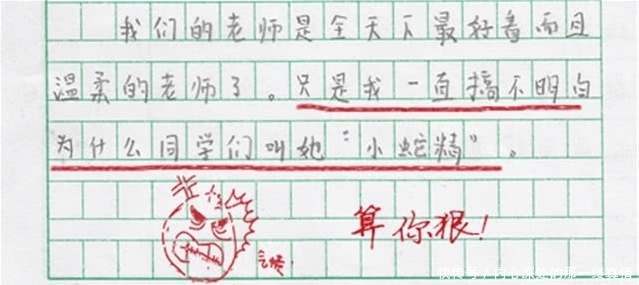 我们的老师是全天下最好看而且
温柔的老师了。只是我一直搞不明白
为什么同学们叫她“小蛇精”。
算你狠!